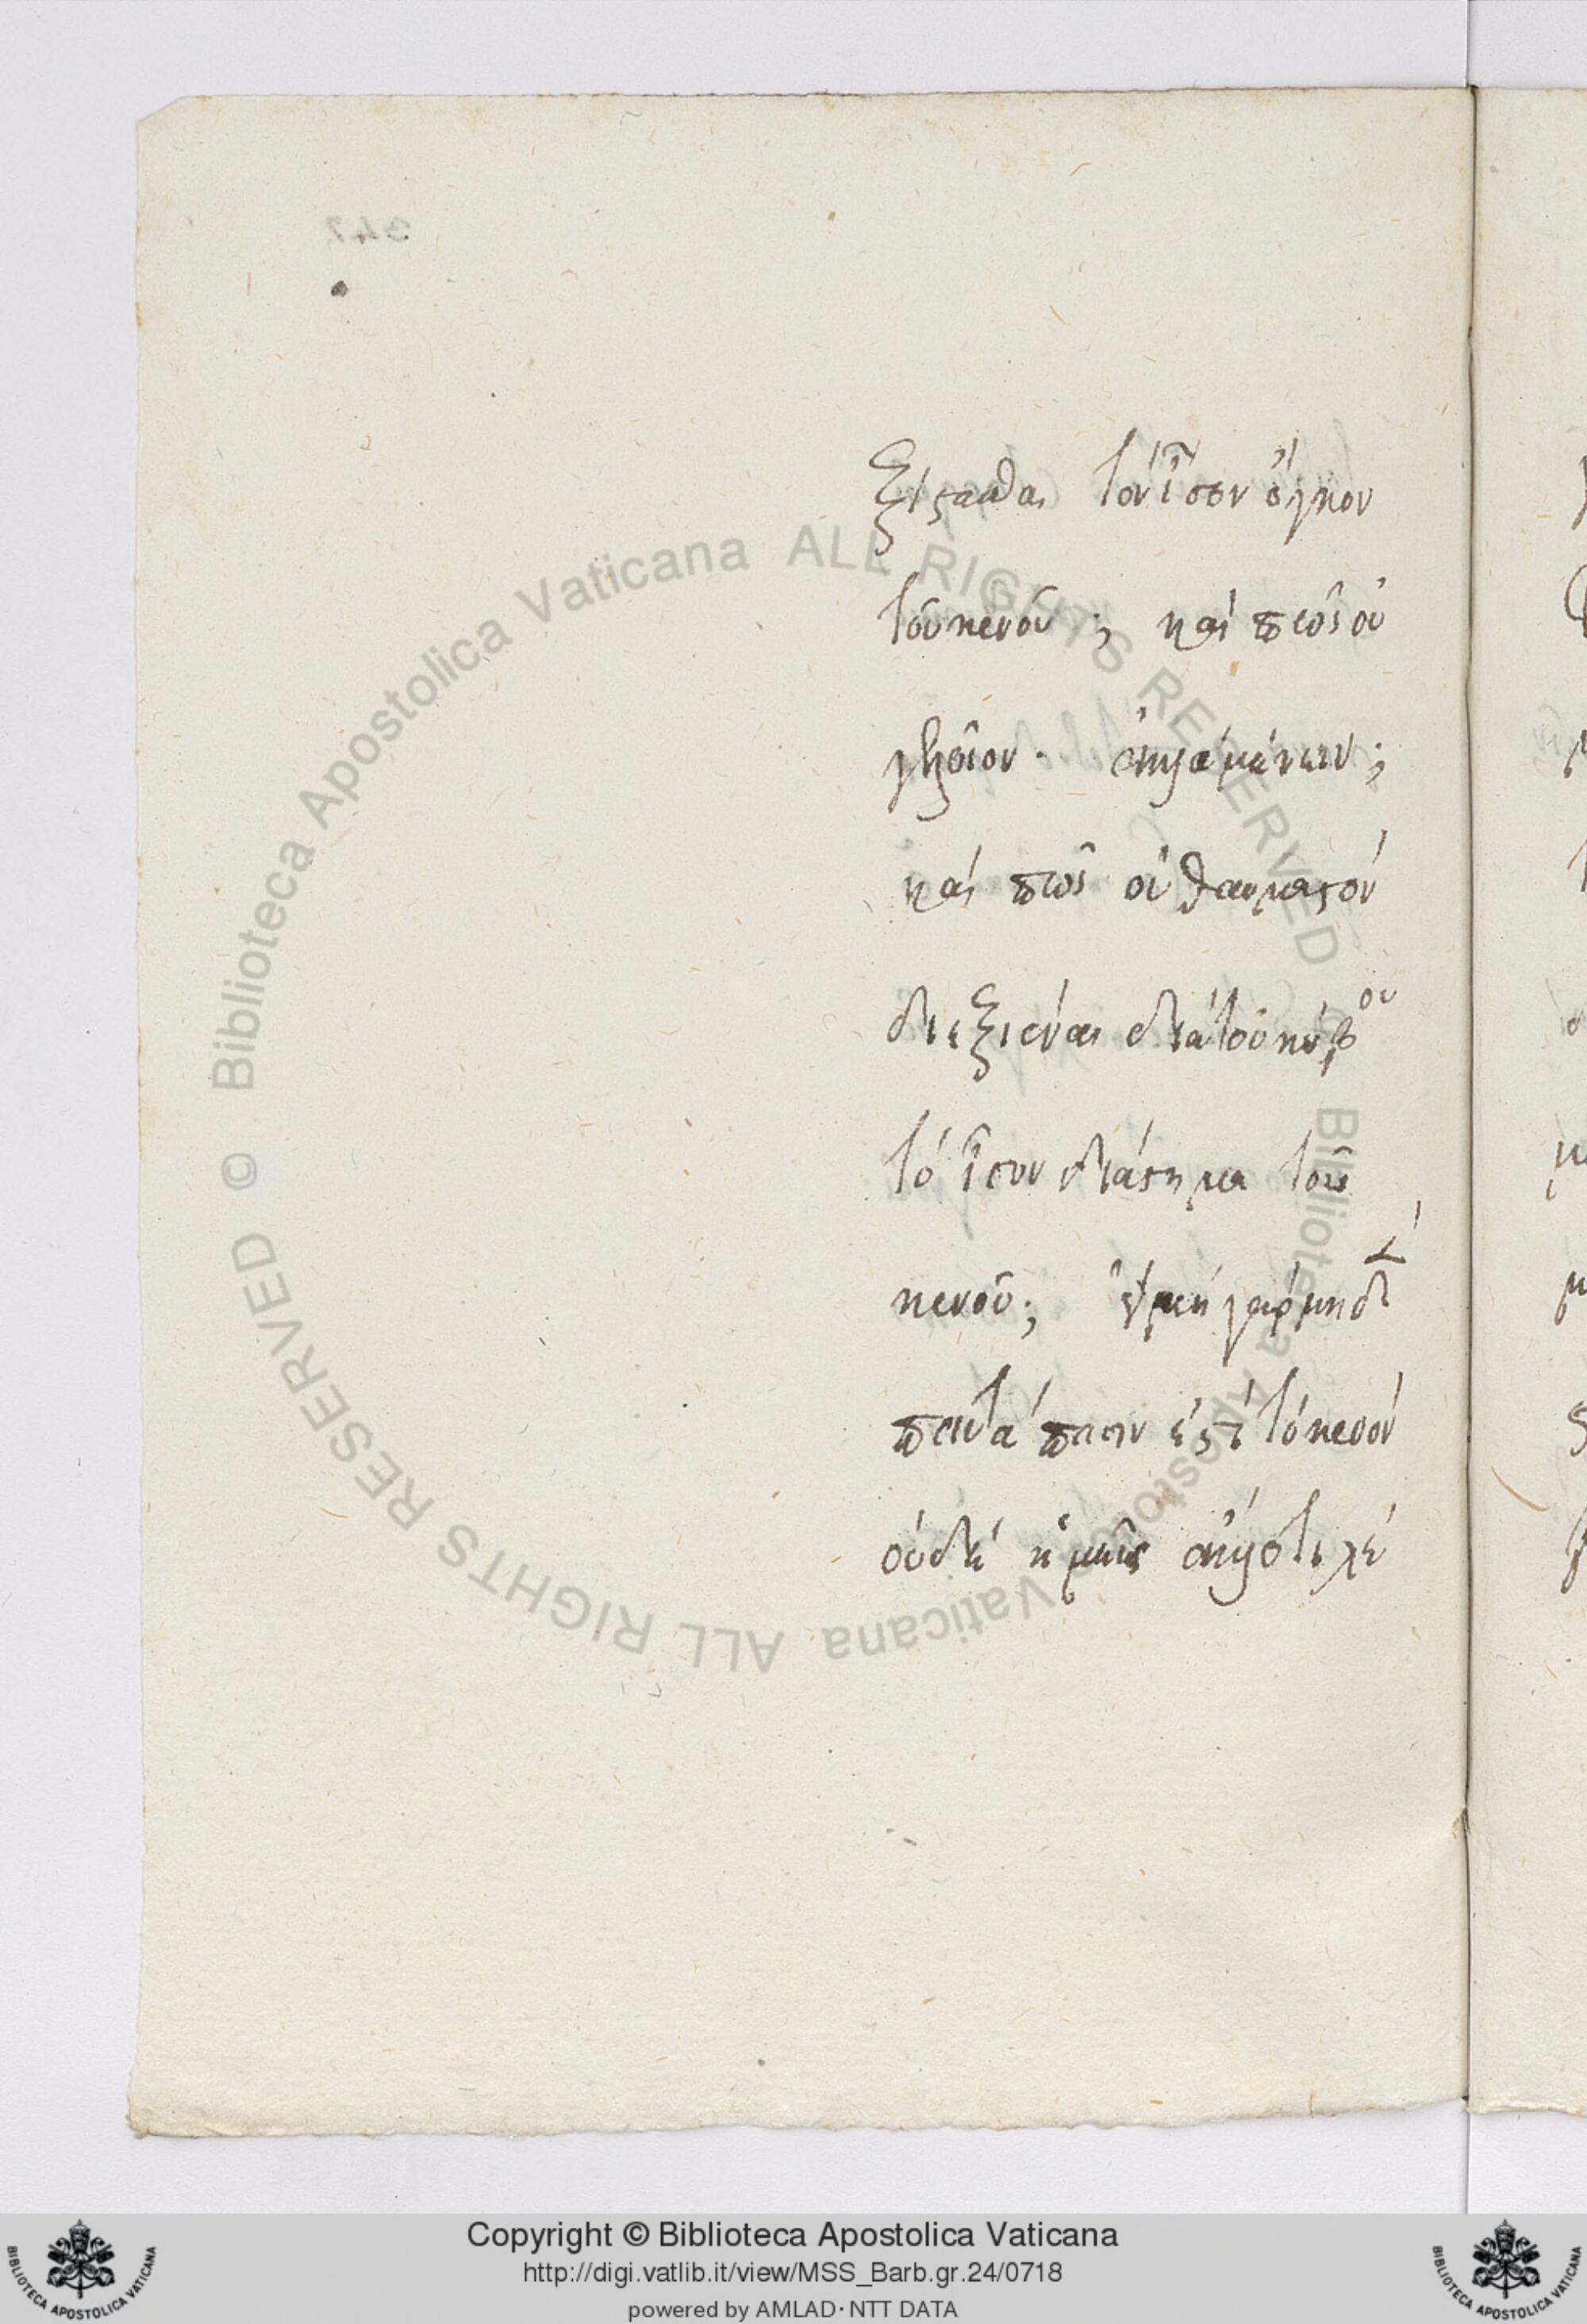 ξίστασθαι τὸν ἴσον ὄγκον
τοῦ κενοῦ; καὶ πῶς οὐ
γελοῖον·
καὶ πῶς οὐ θαυμαστὸν
διεξιέναι διὰ τοῦ κύβου
τὸ ἴσον διάστημα τοῦ
κενοῦ; γὰρ
παντάπασιν ἐστὶ τὸ κενὸν
οὐδὲ ἡμεῖς
© Biblioteca Apostolica Vaticana ALL RIGHTS RESERVED
© Biblioteca Apostolica Vaticana ALL RIGHTS RESERVED
Copyright © Biblioteca Apostolica Vaticana
http://digi.vatlib.it/view/MSS_Barb.gr.24/0718
powered by AMLAD·NTT DATA
BIBLIOTECA APOSTOLICA VATICANA
BIBLIOTECA APOSTOLICA VATICANA